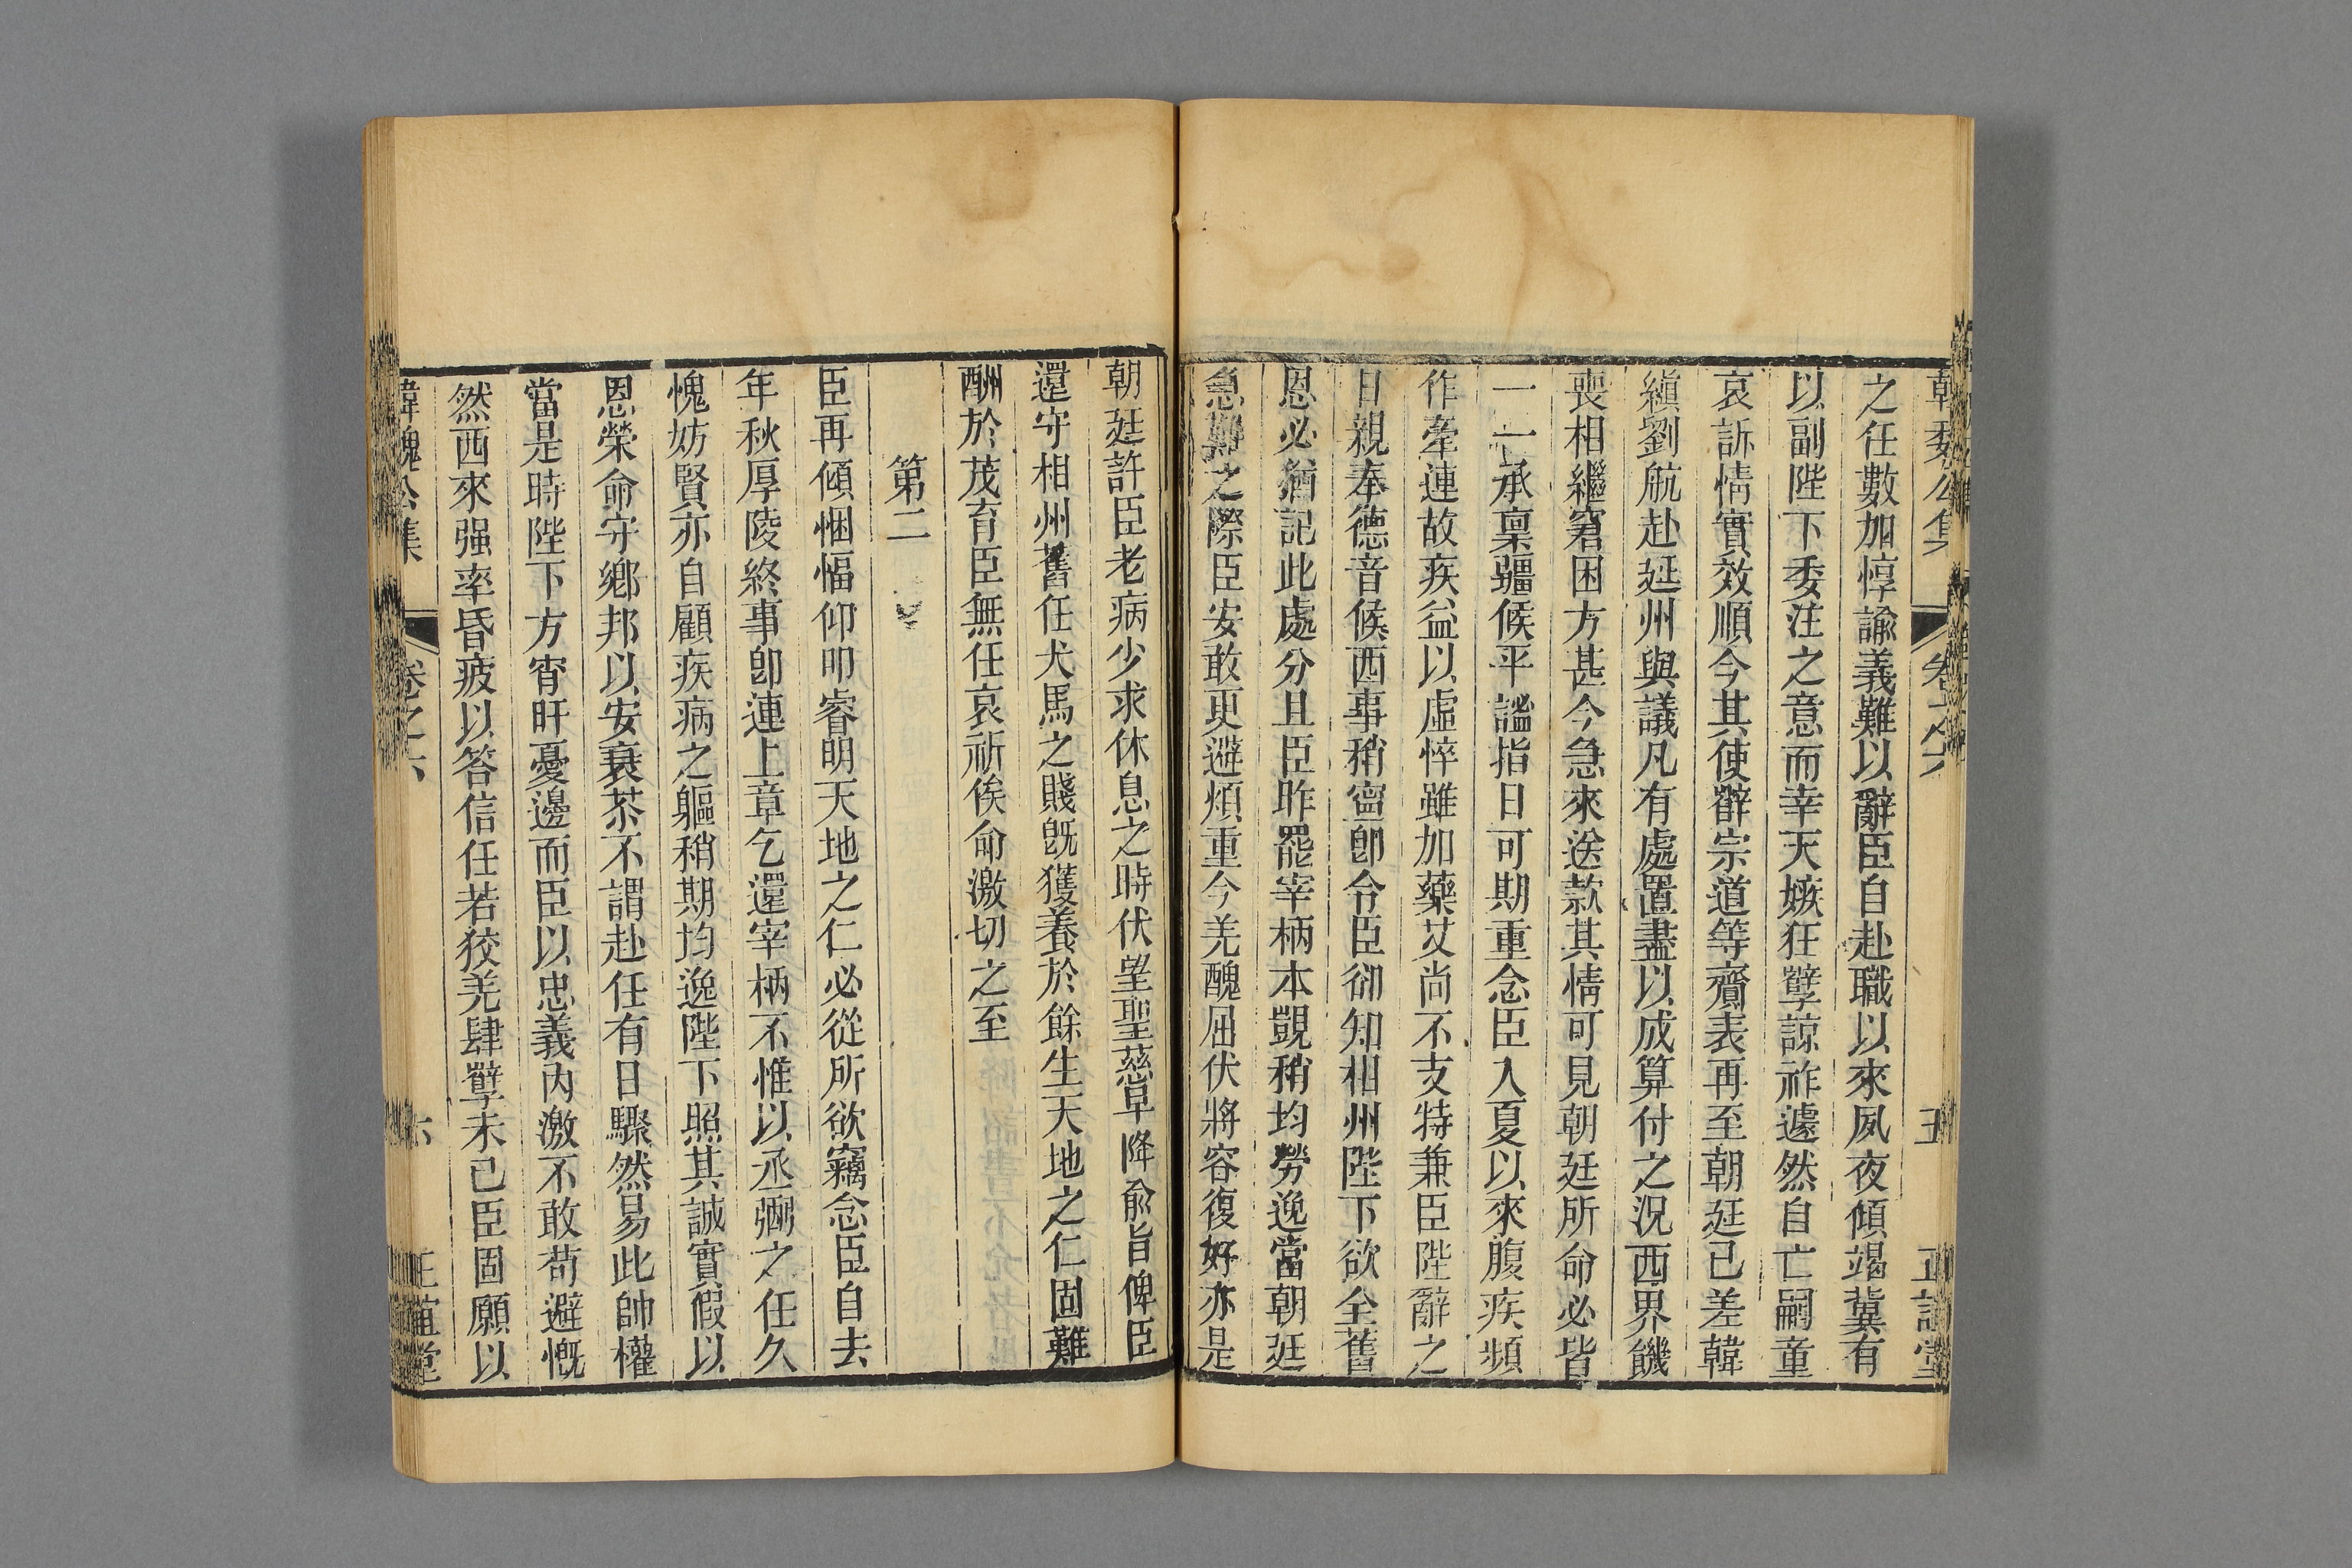 韓魏公集 卷之六 五 正誼堂
之任數加惇諭義難以辭臣自赴職以來夙夜傾竭冀有
以副陛下委注之意而幸天嫉狂孽諒祚遽然自亡嗣童
哀訴情實效順今其使辭宗道等齎表再至朝廷已差韓
縝劉航赴延州與議凡有處置盡以成算付之況西界饑
喪相繼窘困方甚今急來送款其情可見朝廷所命必皆
一一承稟疆候平謐指日可期重念臣入夏以來腹疾頻
作牽連故疾益以虛悴雖加藥艾尚不支特兼臣陛辭之
日親奉德音候西事稍寧卽令臣卻知相州陛下欲全舊
恩必猶記此處分且臣昨罷宰柄本覬稍均勞逸當朝廷
急難之際臣安敢更避煩重今羌醜屈伏將容復好亦是
朝廷許臣老病少求休息之時伏望聖慈早降俞旨俾臣
還守相州舊任犬馬之賤旣獲養於餘生天地之仁固難
酬於茂育臣無任哀祈俟命激切之至
第二
臣再傾悃愊仰叩睿明天地之仁必從所欲竊念臣自去
年秋厚陵終事卽連上章乞還宰柄不惟以丞弼之任久
愧妨賢亦自顧疾病之軀稍期均逸陛下照其誠實假以
恩榮命守鄉邦以安衰苶不謂赴任有日驟然易此帥權
當是時陛下方宵旰憂邊而臣以忠義內激不敢苟避慨
然西來强率昏疲以答信任若狡羌肆孽未已臣固願以
韓魏公集 卷之六 六 正誼堂